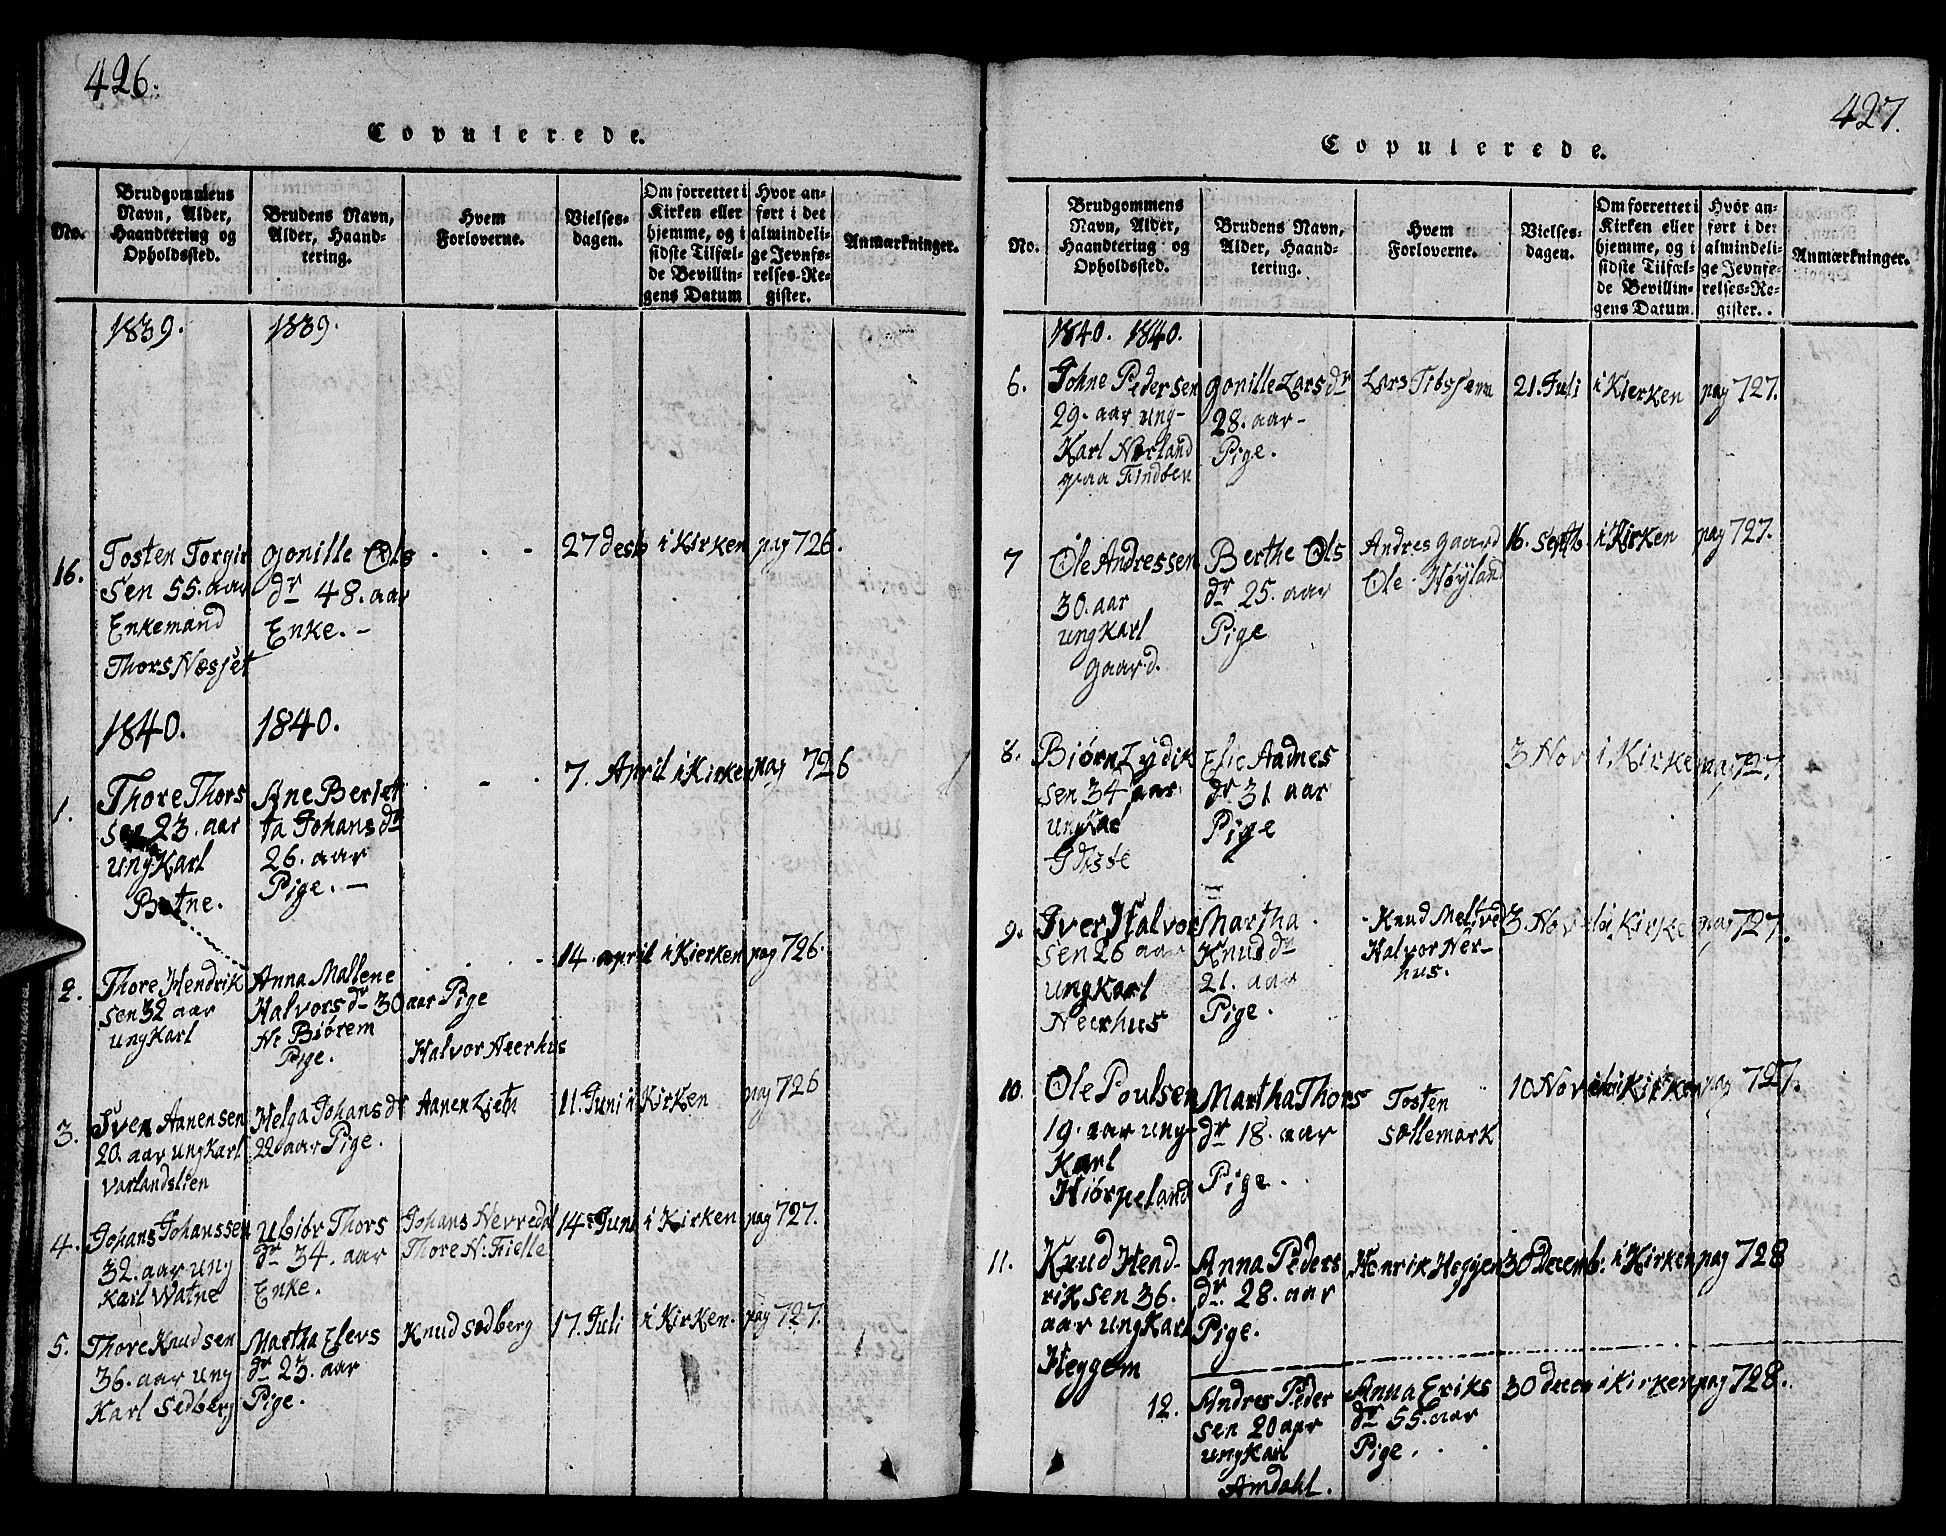 426.
Copulerede.
No.
Brudgommens Navn, Alder, Haandtering og Opholdssted.
Brudens Navn, Alder, Haandtering.
Hvem Forloverne.
Vielsesdagen.
Om forrettet i Kirken eller hjemme, og i sidste Tilfælde Bevillingens Datum
Hvor anført i det almindelige Jevnførelses-Register.
Anmærkninger.
1839. 1839.
16. Tosten Torgir Gonille Ols - - - 27 desb i Kirken pag 726.
Sen 55. aar dr 48. aar
Enkemand Enke. -
Thors Næsset
1840. 1840.
1. Thore Thors Ane Berlet - - 7. April i Kirken pag 726
sen 23. aar ta Johans dr
ungKarl 26. aar
Botne. Pige. -
2. Thore Hendrik Anna Mallene - 14. april i Kierken pag 726.
sen 32 aar Halvors dr 30 aar Pige
ungKarl N: Biörem
Pige. Halvor Neerhus
3. Sven Aanensen Helga Johans dr Aanen Lieth 11. Juni i Kirken pag 726
20. aar ungKarl 22 aar Pige.
Varlandslien
4. Johans Johanssen Ubiör Thors Johans Nevredal 14. Juni i Kirken pag 727.
32. aar ung dr 34. aar Thore N: Fielle
Karl Watne Enke.
5. Thore Knudsen Martha Elevs Knud Sedberg 17. Juli i Kirken. pag 727.
36. aar ung dr 23. aar
Karl Sedberg Pige.
427.
Copulerede.
No.
Brudgommens Navn, Alder, Haandtering og Opholdssted.
Brudens Navn, Alder, Haandtering.
Hvem Forloverne.
Vielsesdagen.
Om forrettet i Kirken eller hjemme, og i sidste Tilfælde Bevillingens Datum.
Hvor anført i det almindelige Jevnførelses-Register.
Anmærkninger.
1840. 1840.
6. Johne Pedersen Gonille Lars dr Lars 21. Juli i Kierken pag 727.
29. aar ung- 28. aar-
Karl Norland Pige.
paa Findöen
7 Ole Andressen Berthe Ols Andres Gaard 16. Septb i Kirken pag 727.
30. aar dr 25. aar Ole Höyland
ungKarl Pige
Gaard.
8. Biørn Lydik Elie Aadnes 3 Nov i Kirken pag 727
sen 34 aar dr 31 aar
ungKarl Pige
Idsöe
9. Iver Halvor Martha Knud Meltved 3. Nov i Kirke pag 727.
sen 26 aar Knud dr Halvor Ner-
ungKarl 21. aar hus.
Neerhus Pige.
10. Ole Poulsen Martha Thors Tosten 10 Nov i Kirken pag 727.
19. aar ung- dr 18. aar Sollemark
Karl Pige.
Hiörpeland
11. Knud Hend- Anna Peders Henrik Heggen 30 decemb. i Kirken pag 728
rik sen 36. dr 28. aar
aar ungKarl Pige.
Heggem
12. Andres Peder Anna Eriks 30 decem i Kirken pag 728.
sen 20 aar dr 55. aar
ungKarl Pige.
Amdahl.